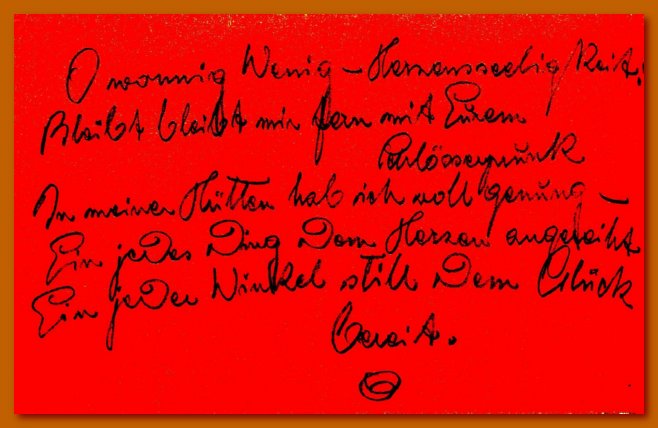 O wonnig Wenig – Herzensseeligkeit!
Bleibt bleibt mir fern mit Eurem
Schlösserprunk
In meiner Hütten hab ich voll genung –
Ein jedes Ding dem Herzen angereiht
Ein jeder Winkel still dem Glück
bereit.